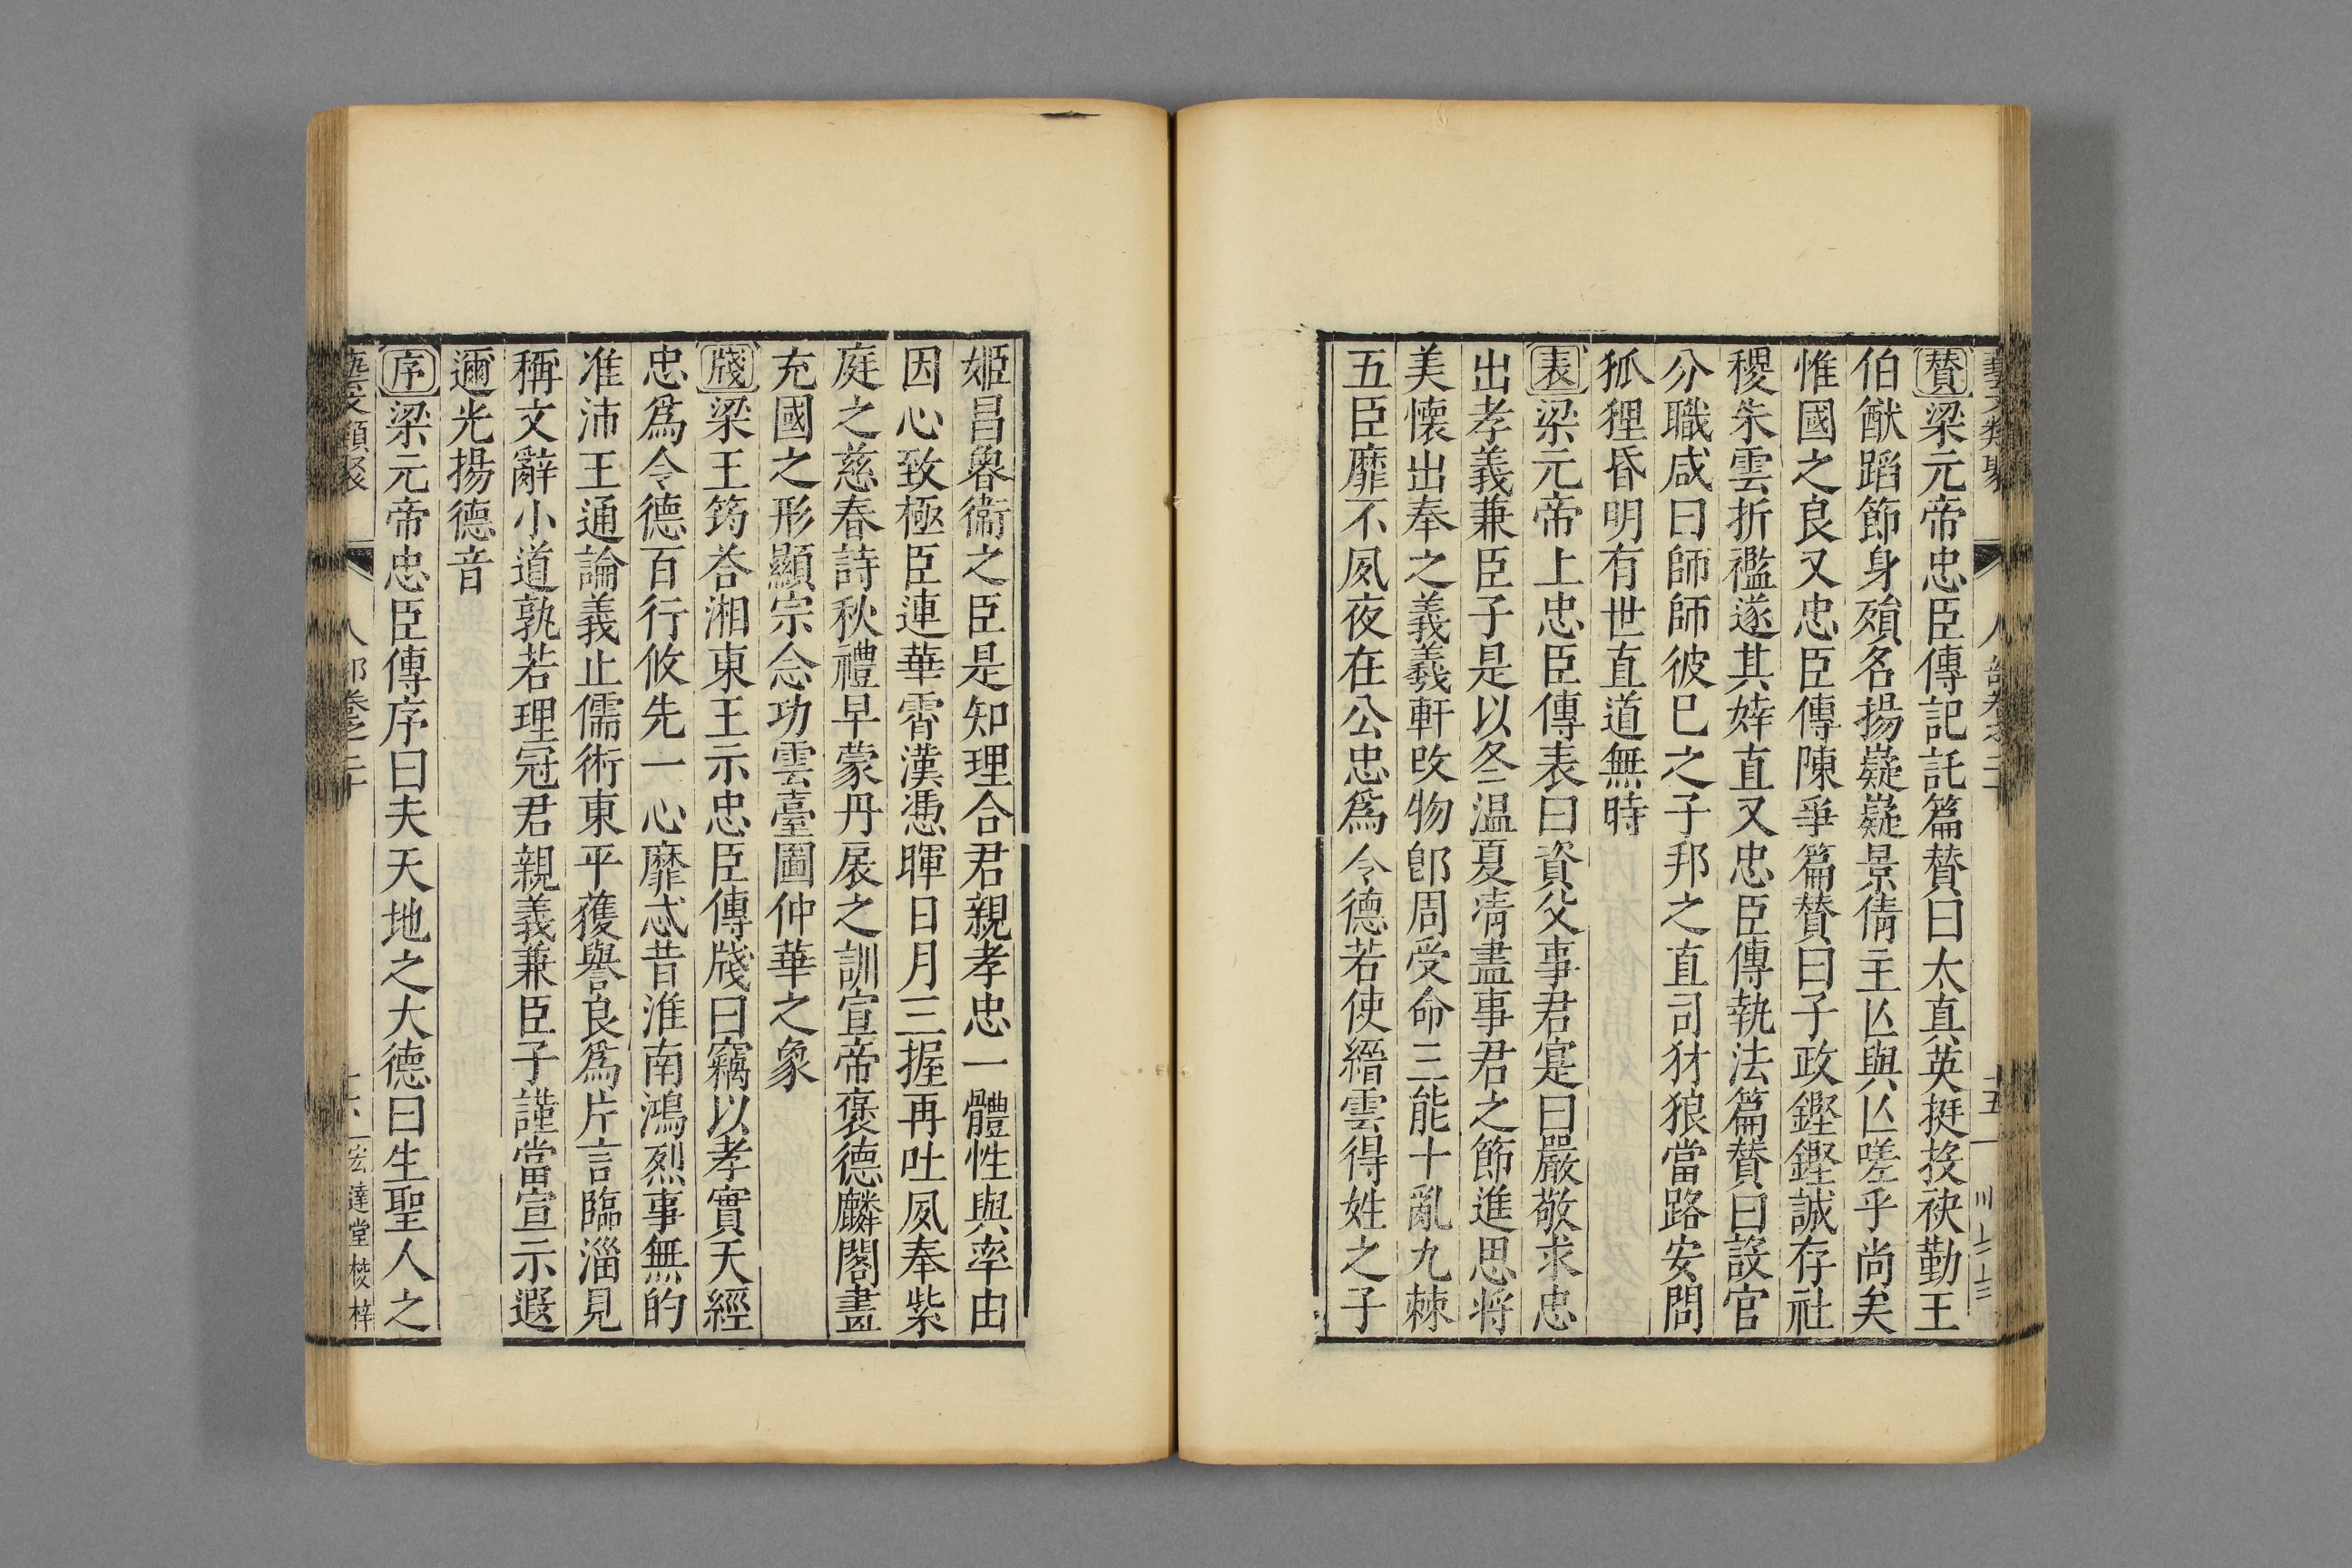 藝文類聚 人部卷之二十 十五
賛梁元帝忠臣傳記託篇賛曰太真英挺投袂勤王
伯猷蹈節身殞名揚嶷嶷景倩主亾與亾嗟乎尚矣
惟國之良又忠臣傳陳爭篇賛曰子政鏗鏗誠存社
稷朱雲折檻遂其婞直又忠臣傳執法篇賛曰設官
分職咸曰師師彼已之子邦之直司犲狼當路安問
狐狸昏明有世直道無時
表梁元帝上忠臣傳表曰資父事君寔曰嚴敬求忠
出孝義兼臣子是以冬温夏凊盡事君之節進思将
美懐出奉之義羲軒改物郎周受命三能十亂九棘
五臣靡不夙夜在公忠爲令德若使縉雲得姓之子
姬昌魯衞之臣是知理合君親孝忠一體性與率由
因心致極臣連華霄漢慿暉日月三握再吐夙奉紫
庭之慈春詩秋禮早蒙丹扆之訓宣帝褒德麟閣畫
充國之形顯宗念功雲臺圖仲華之象
牋梁王筠荅湘東王示忠臣傳牋曰竊以孝實天經
忠爲令德百行攸先一心靡忒昔淮南鴻烈事無的
准沛王通論義止儒術東平獲譽良爲片言臨淄見
稱文辭小道孰若理冠君親義兼臣子謹當宣示遐
邇光揚德音
序梁元帝忠臣傳序曰夫天地之大德曰生聖人之
藝文類聚 人部卷之二十 宏達堂棱梓